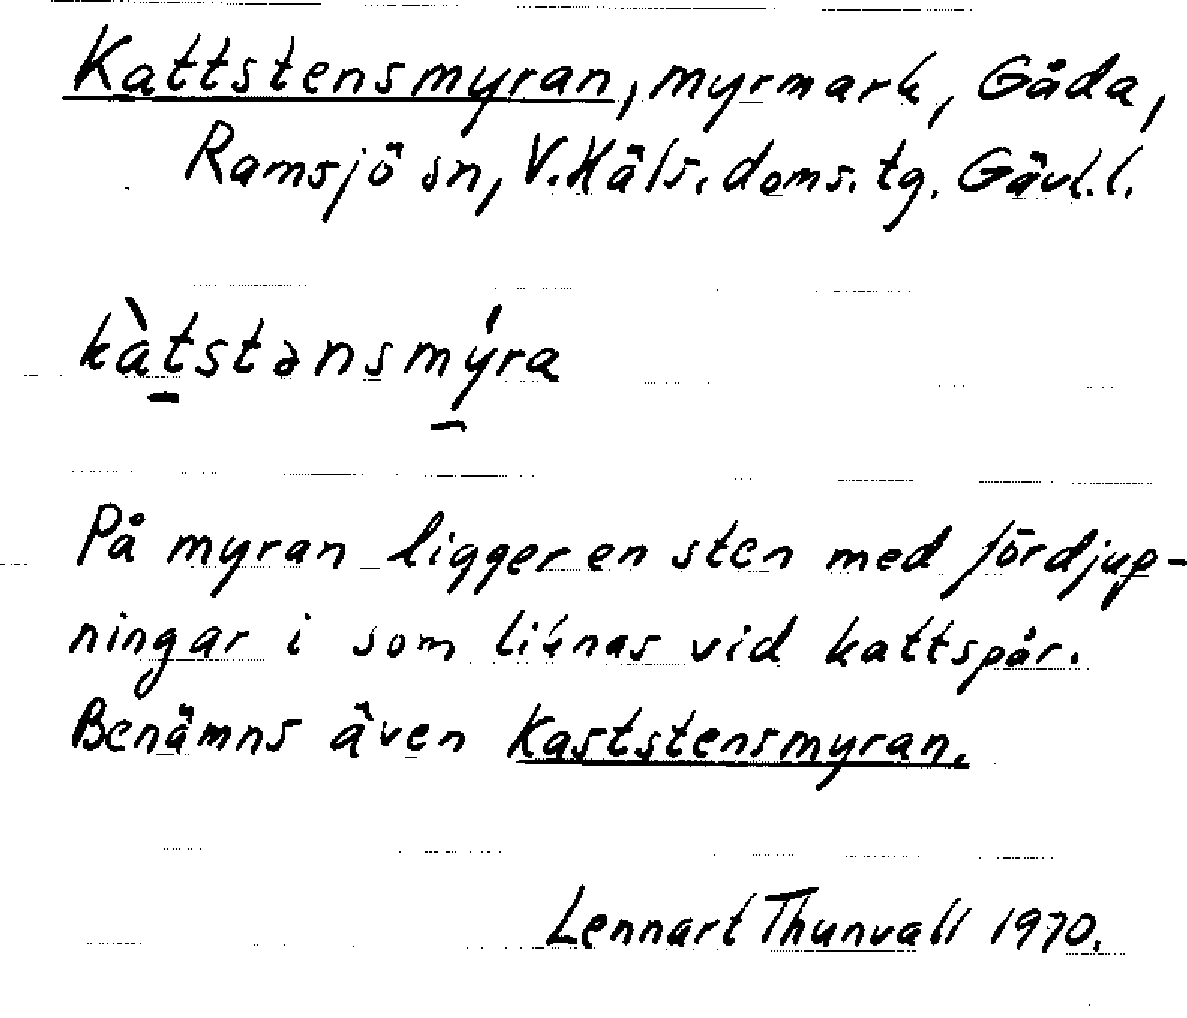 Kattstensmyran, myrmark, Gåda,
Ramsjö sn, V. Häls. doms. tg. Gävl. l.
kàtstənsmýra
På myran ligger en sten med fördjup-
ningar i som liknas vid kattspår.
Benämns även Kaststensmyran.
Lennart Thunvall 1970.